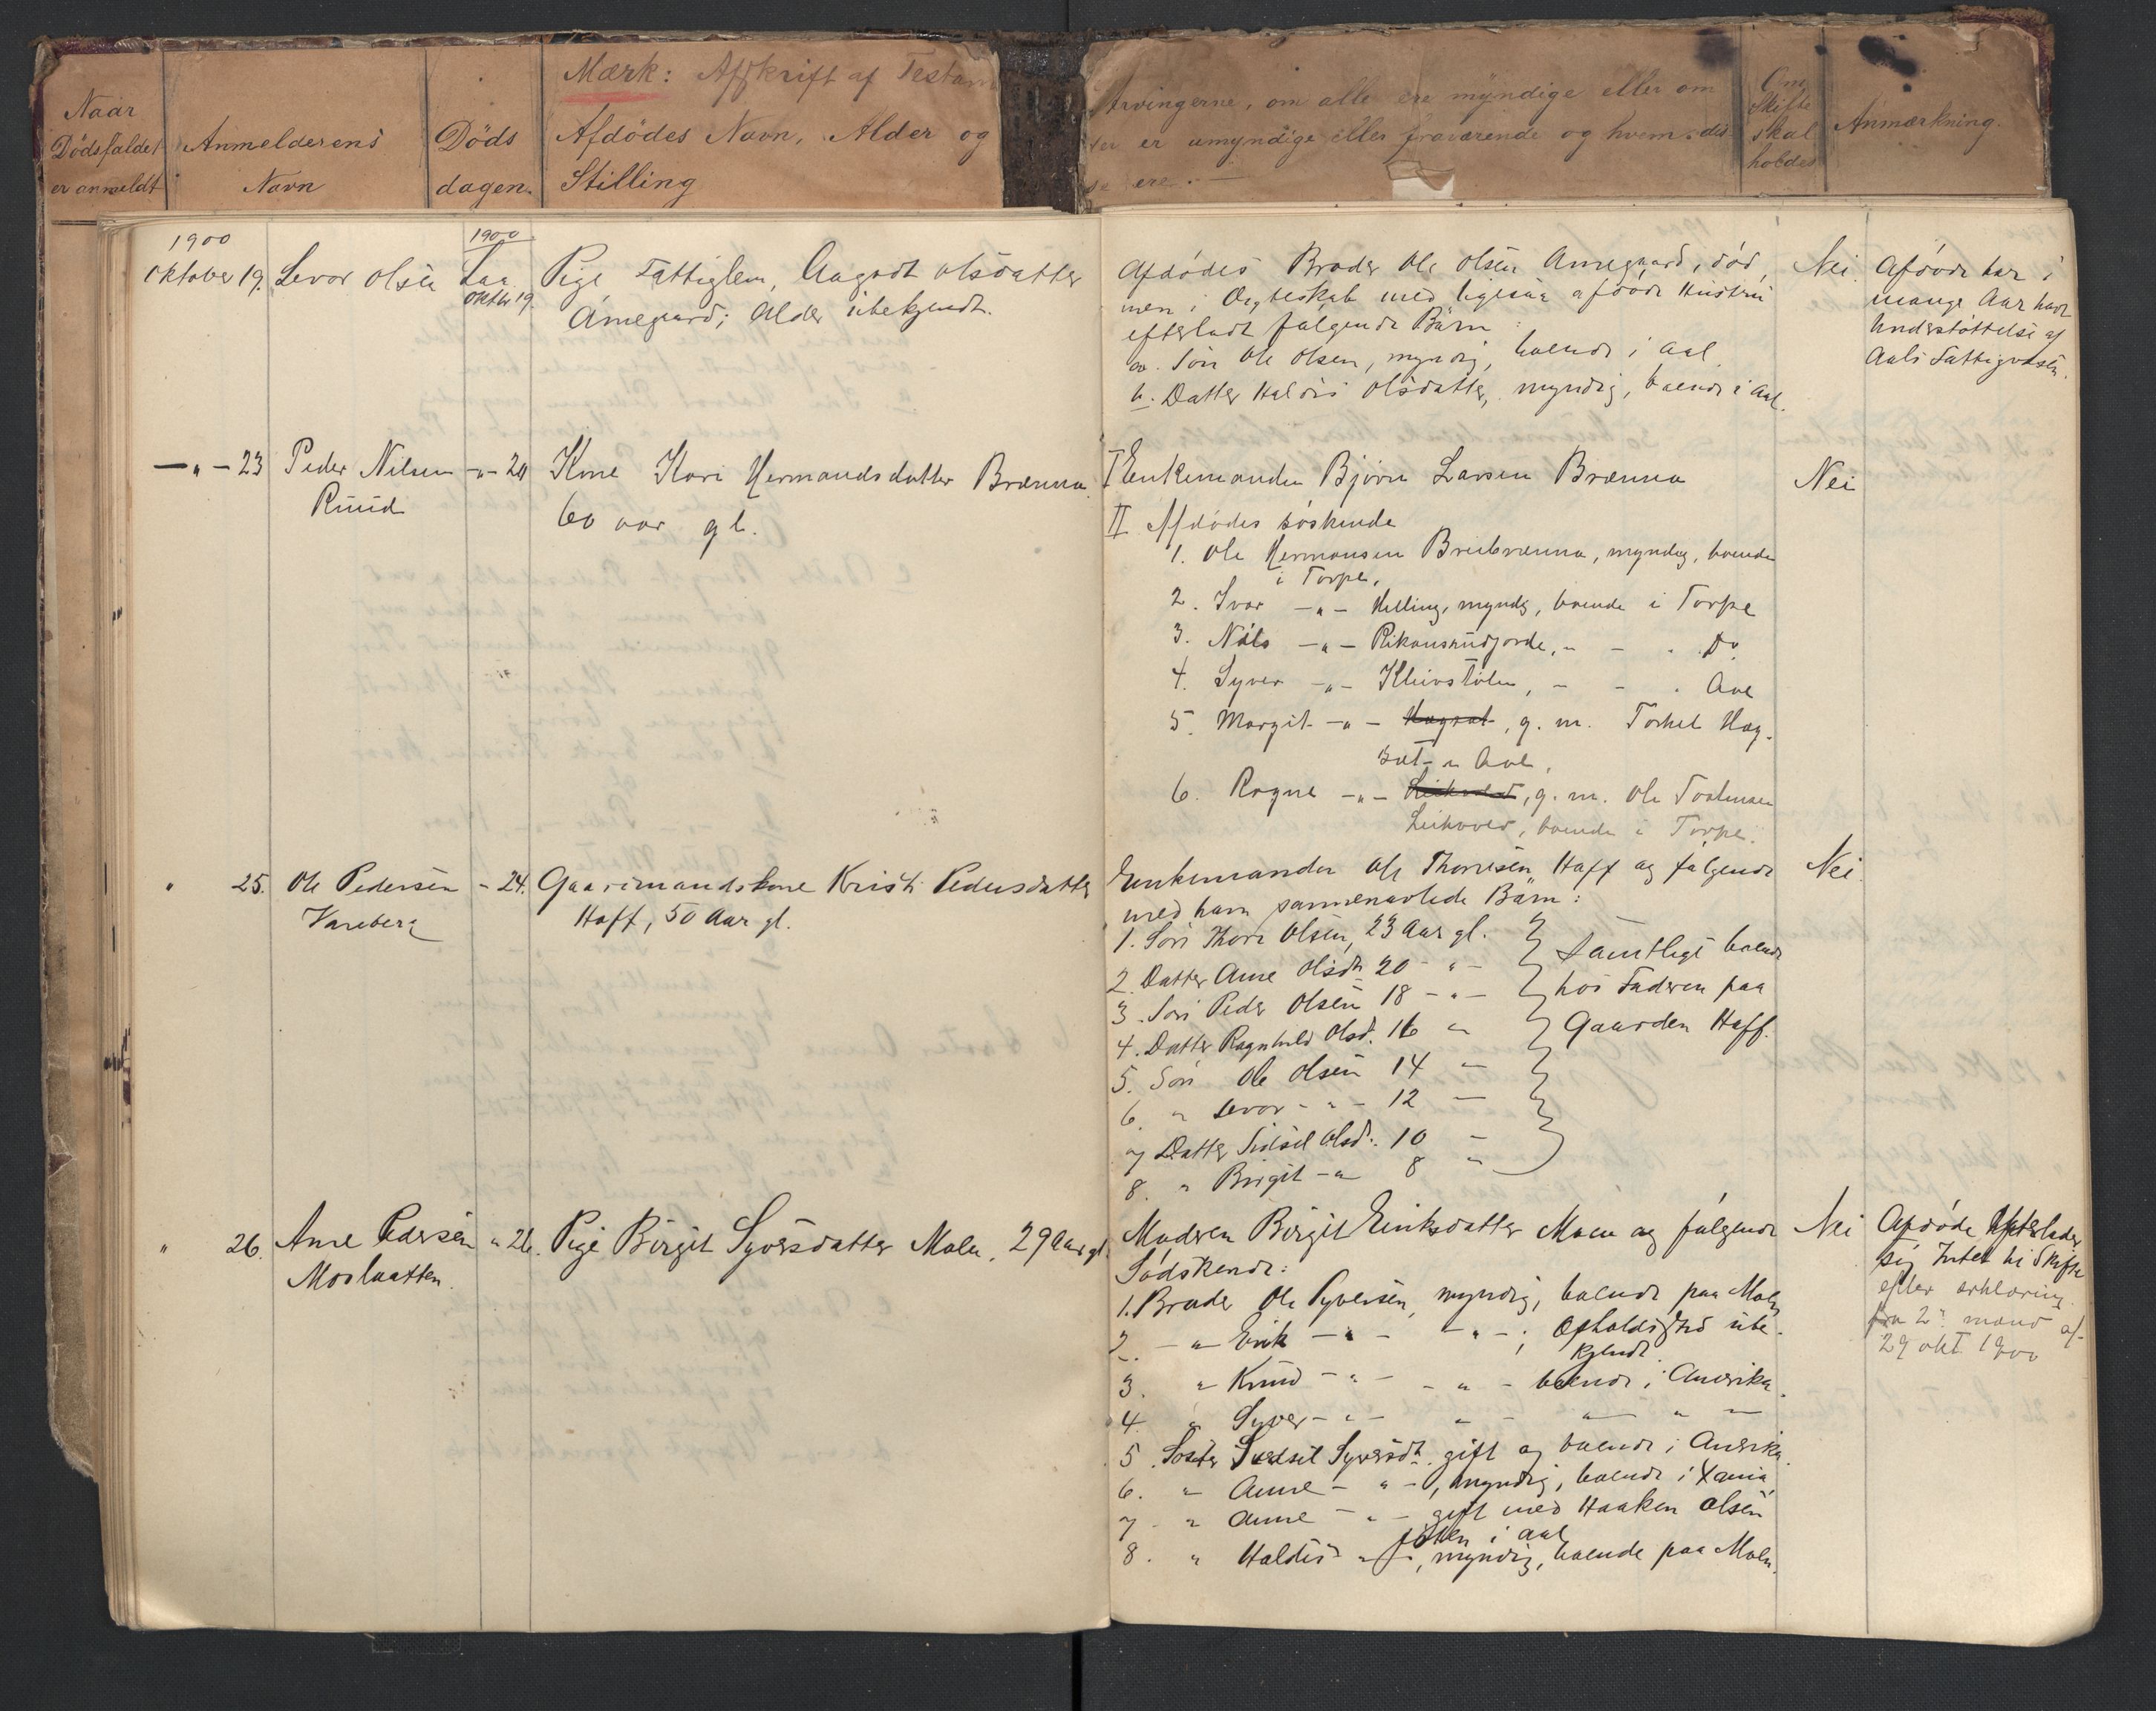 Mærk: Afskrift af Testam
Naar
Dödsfaldet
er anmeldt
Anmelderens
Navn
Döds
dagen.
Afdödes Navn, Alder og
Stilling
Arvingerne, om alle ere myndige eller om
er umyndige eller fraværende og hvem dis
se ere.
Om
Skifte
skal
holdes
Anmærkning.
1900
Oktober 19.
Levor Olsen
1900
Oktbr 19.
Pige Fattiglem, Aagodt Olsdatter
Amegaard; Alder ubekjendt.
Afdødes Broder Ole Olsen Amegaard, død,
men i Ægteskab med ligesaa afdøde Hustru
efterladt følgende Børn:
a. Søn Ole Olsen, myndig, boende i Aal.
b. Datter Haldis Olsdatter, myndig, boende i Aal.
Nei.
Afdøde har i
mange Aar havt
Understøttelse af
Aals Fattigvæsen.
—"— 23
Peder Nilsen
Ruud
-"- 20
Kone Kari Hermandsdatter Brænna
60 aar gl.
I Enkemanden Bjørn Larsen Brænna
II Afdødes søskende
1. Ole Hermansen Breibrænna, myndig, boende
i Torpe,
2. Ivar —"— Helling, myndig, boende i Torpe
3. Nils —"— Rikansrudjorde, " - " Do
4. Syver —"— Kleivstølen, - - " Aal
5. Margit —"— Hagset, g. m. Torkel Hag-
set i Aal,
6. Ragne —"— g. m. Ole Tostensen
Leikvold, boende i Torpe.
Nei
" 25.
Ole Pedersen
Vareberg
- 24.
Gaardmandskone Kristi Pedersdatter
Hoff, 50 Aar gl.
Enkemanden Ole Thoresen Hoff og følgende
med ham sammenavlede Børn:
1. Søn Thore Olsen, 23 Aar gl.
2. Datter Anne Olsdtr 20 - " -
3. Søn Peder Olsen 18 - " -
4. Datter Ragnhild Olsd. 16 "
5. Søn Ole Olsen 14 "
6. " Levor - " - 12 —
7 Datter Sidsel Olsd. 10 -
8. " Birgit -" 8 "
Samtlige boende
hos Faderen paa
Gaarden Hoff.
Nei.
" 26.
Arne Pedersen
Moslaatten.
" 26.
Pige Birgit Syversdatter Moen, 29 Aar gl.
Moderen Birgit Eriksdatter Moen og følgende
Sødskende:
1. Broder Ole Syversen, myndig, boende paa Moen
2. -"- Erik —"— —"—; Opholdssted ube-
kjendt.
3. " Knud - " - - " - boende i Amerika.
4. " Syver - " - " - " " —
5. Søster Sidsel Syversdtr. gift og boende i Amerika.
6. " Anne - " -, myndig, boende i Xania,
7. " Anne - " - gift med Haaken Olsen
i Aal
8. " Haldis - " -, myndig, boende paa Moen.
Nei
Afdøde efterlader
sig Intet til Skifte
efter erklæring
fra 2de mænd af
29 okt. 1900